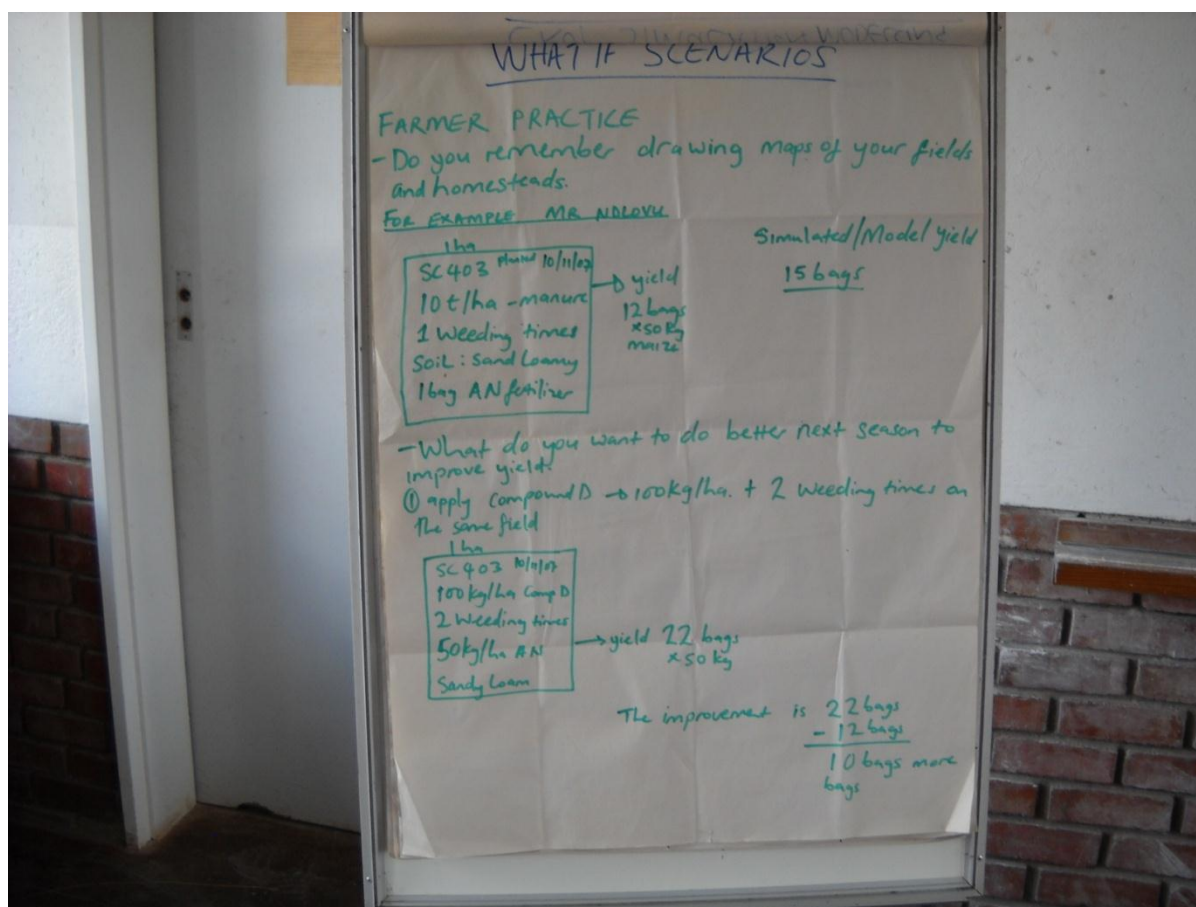 WHAT IF SCENARIOS
FARMER PRACTICE
- Do you remember drawing maps of your fields
and homesteads.
FOR EXAMPLE MR NDLOVU
1ha
SC403 planted 10/11/07
10t/ha - manure
1 Weeding times
Soil: Sand Loamy
1bag AN fertilizer
yield
12 bags
x50kg
maize
Simulated/Model yield
15 bags
- What do you want to do better next season to
improve yield.
① apply Compound D → 100kg/ha. + 2 weeding times on
the same field
1ha
SC403 10/11/07
100kg/ha Comp D
2 Weeding times
50kg/ha AN
Sandy Loam
→ yield 22 bags
x50kg
The improvement is 22 bags
- 12 bags
10 bags more
bags